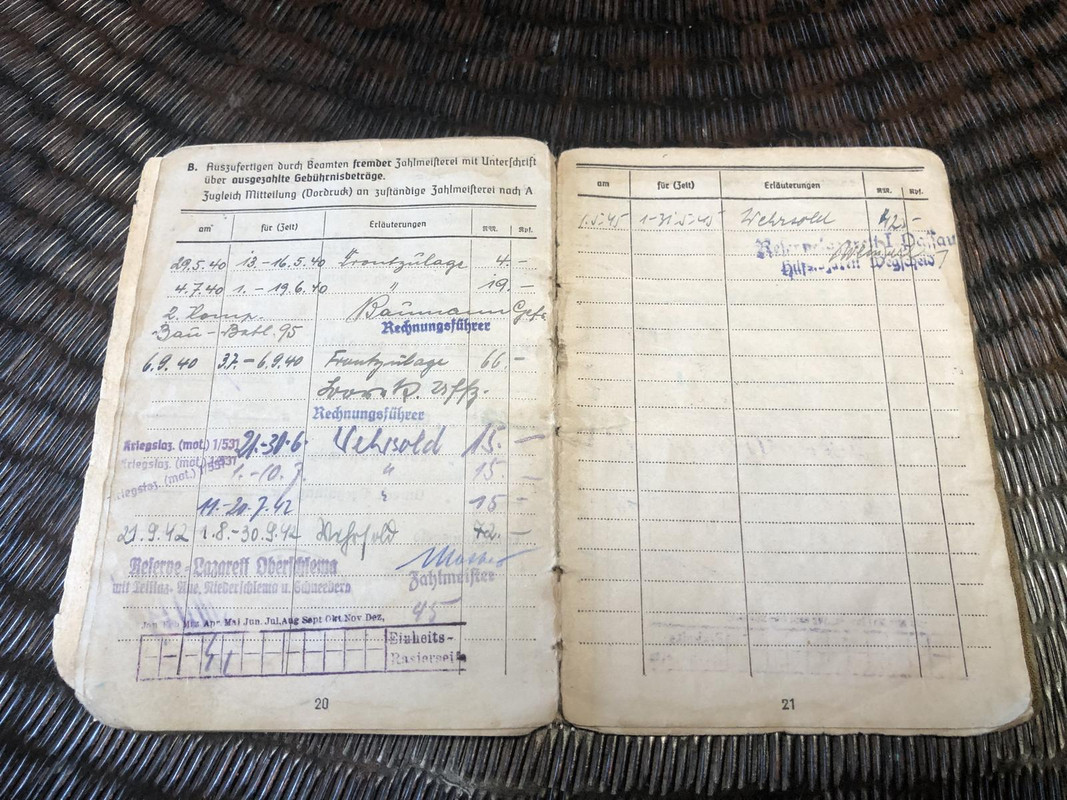 B. Auszufertigen durch Beamten fremder Zahlmeisterei mit Unterschrift
über ausgezahlte Gebührnisbeträge.
Zugleich Mitteilung (Vordruck) an zuständige Zahlmeisterei nach A
am für (Zeit) Erläuterungen RM. Rpf.
29.5.40 13.-16.5.40 Frontzulage 4.-
4.7.40 1.-19.6.40 " 19.-
2. Komp. Baumann Gefr.
Bau-Batl. 95 Rechnungsführer
6.9.40 3.7.-6.9.40 Frontzulage 66.-
Uffz.
Rechnungsführer
Kriegslaz. (mot.) 1/531 21.-30.6. Wehrsold 15.-
Kriegslaz. (mot.) 1/531 1.-10.7. " 15.-
Kriegslaz. (mot.)
11.-20.7.42 " 15.-
21.9.42 1.8.-30.9.42 Wehrsold 72.-
Reserve-Lazarett Oberschlema
mit Teillaz. Aue, Niederschlema u. Schneeberg
Zahlmeister
45
Jan Feb Mrz Apr Mai Jun. Jul. Aug Sept Okt. Nov Dez.
Einheits-
Rasierseife
20
am für (Zeit) Erläuterungen RM. Rpf.
1.5.45 1.-31.5.45 Wehrsold 42.-
Reservelazarett I Passau
Wegscheid
21